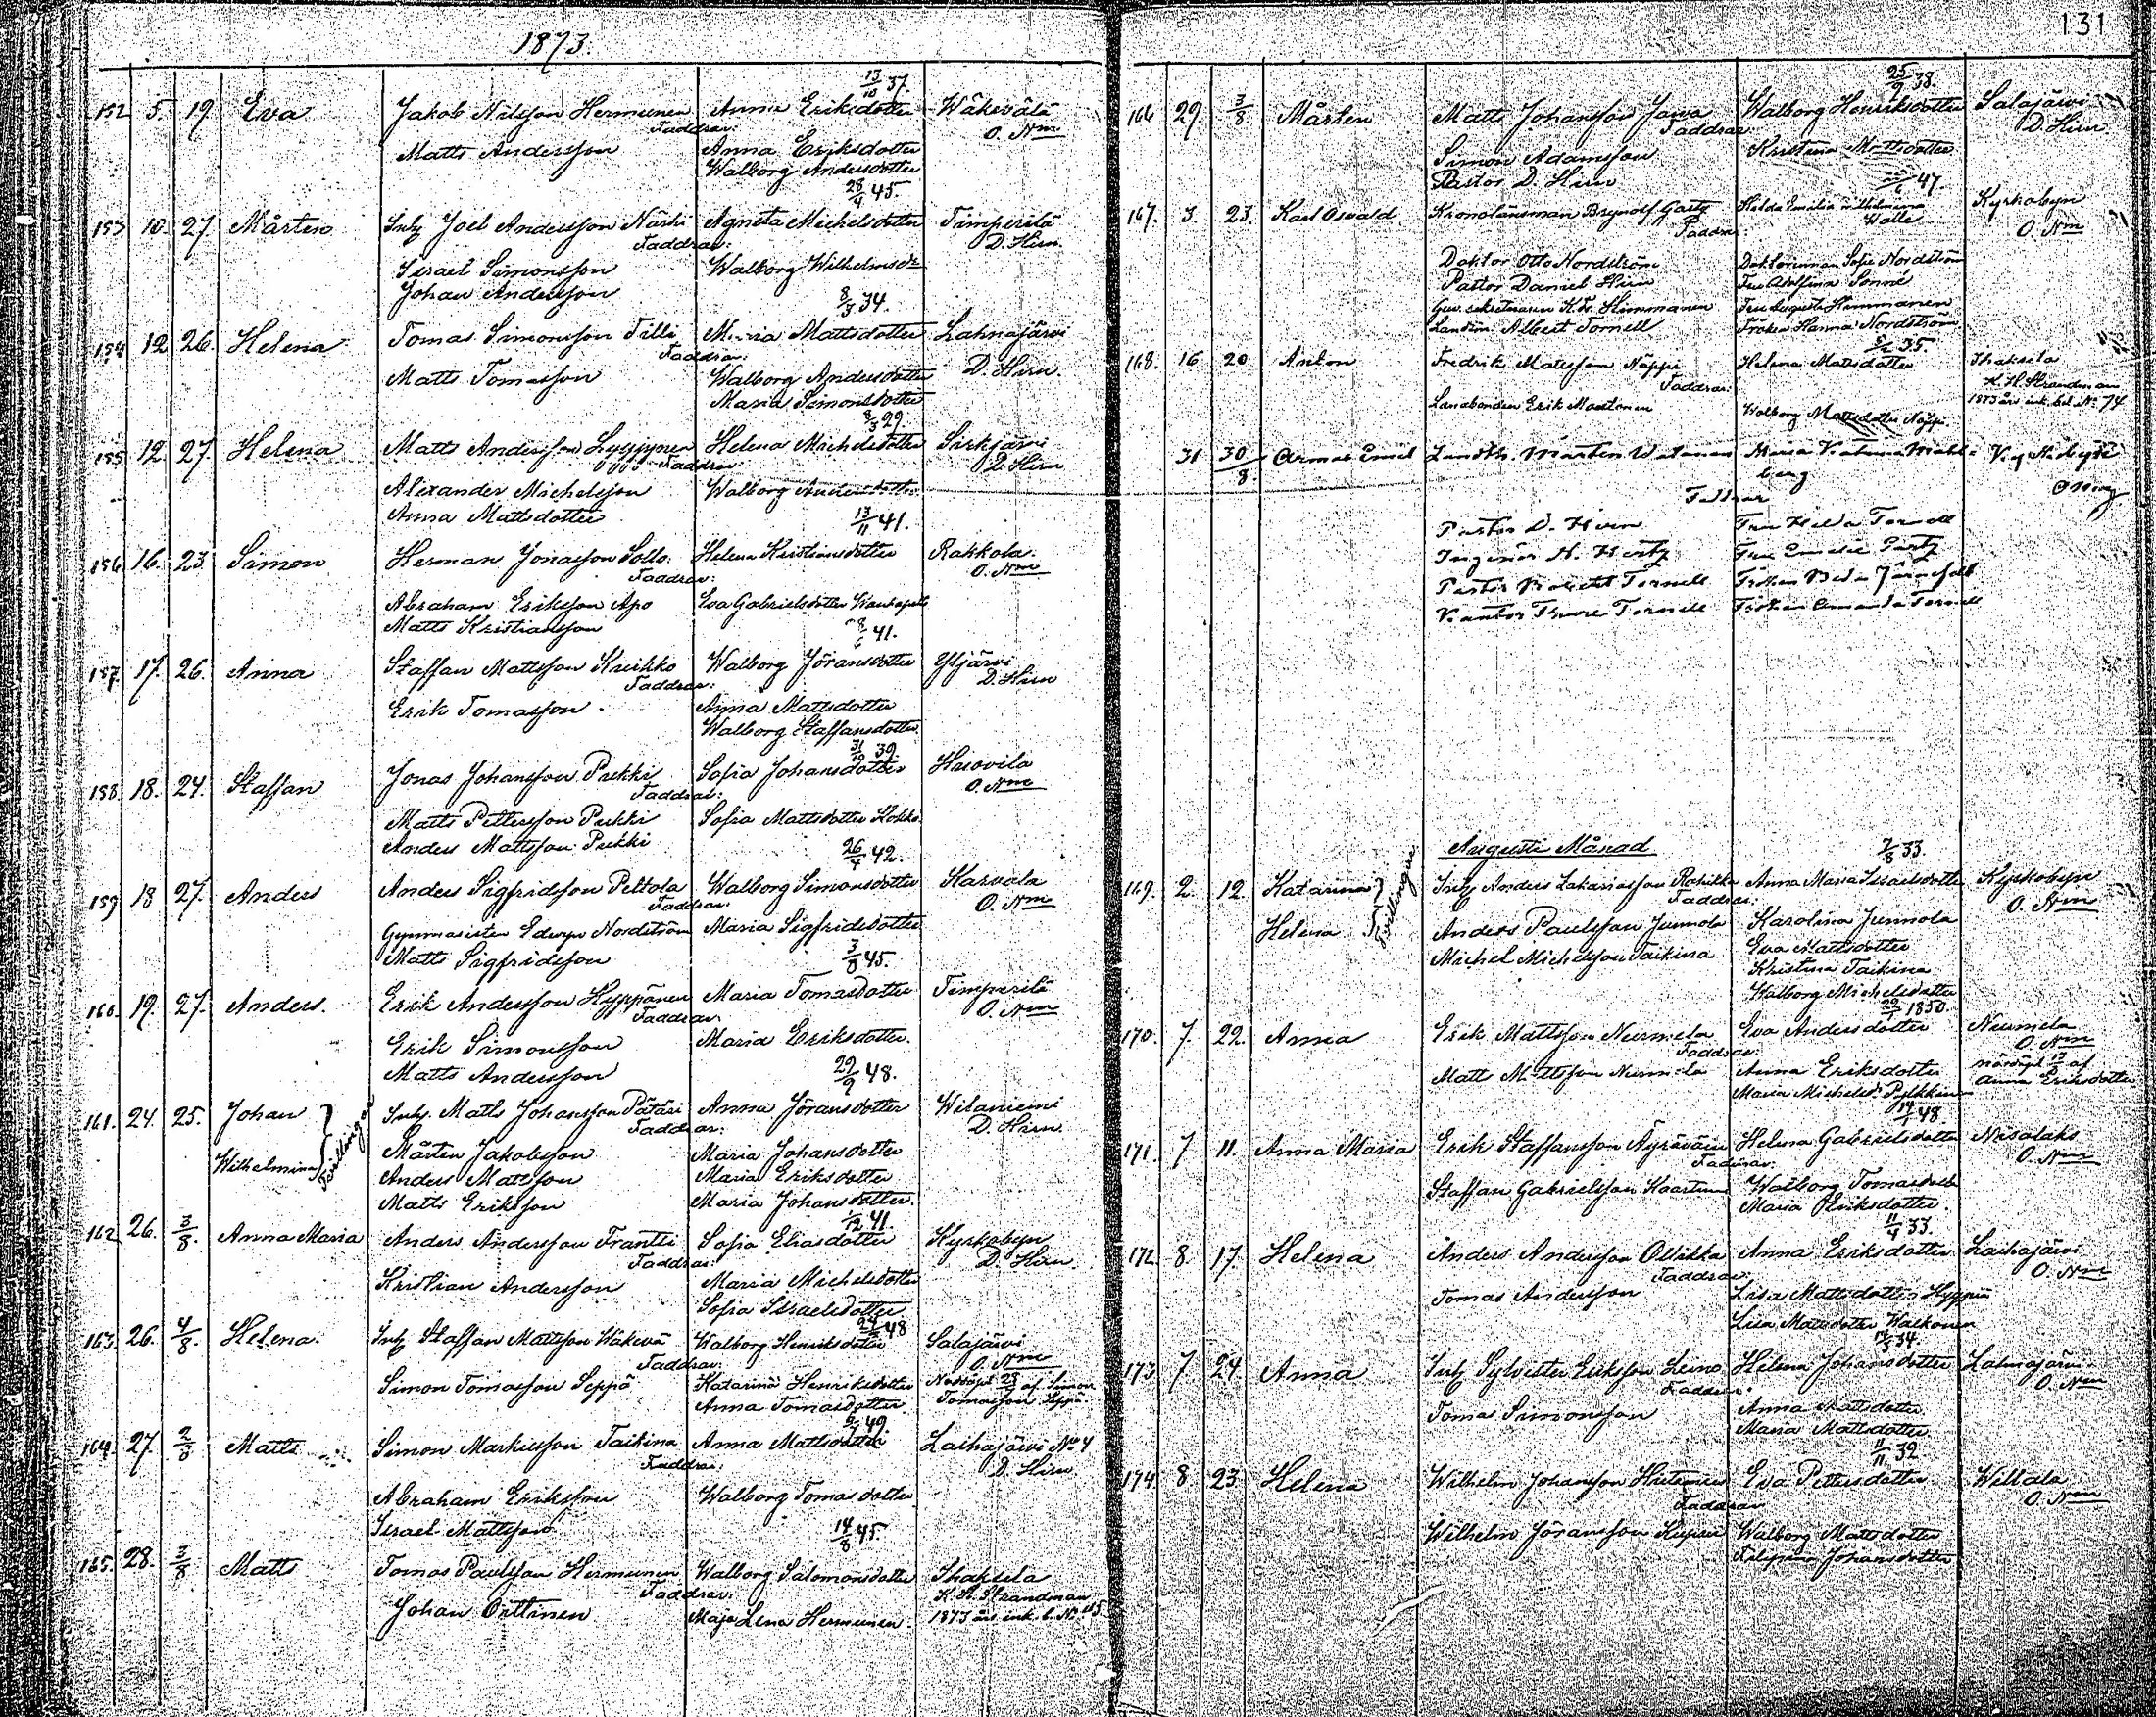 1873.
131
13/10 37.
152 5. 19. Eva Jakob Nilsson Hermunen Anna Eriksdotter Wäkevälä
Faddrar: O. Nm
Matts Andersson Anna Eriksdotter
Walborg Andersdotter
28/4 45.
153 10. 27. Mårten Inh. Joel Andersson Närhi Agneta Michelsdotter Timperilä
Faddrar: D. Hirn
Israel Simonsson Walborg Wilhelmsdr
Johan Andersson
8/3 34.
154 12 26. Helena Tomas Simonsson Tilli Maria Mattsdotter Lahnajärvi
Faddrar: D. Hirn
Matts Tomasson Walborg Andersdotter
Maria Simonsdotter
8/3 29.
155 12. 27. Helena Matts Andersson Lyyjynen Helena Michelsdotter Sirkjärvi
Faddrar: D. Hirn
Alexander Michelsson Walborg Andersdotter
Anna Mattsdotter
13/11 41.
156 16. 23. Simon Herman Jonasson Sollo Helena Kristiansdotter Rakkola.
Faddrar: O. Nm
Abraham Eriksson Apo Eva Gabrielsdotter
Matts Kristiansson
41.
157. 17. 26. Anna Staffan Mattsson Kuikko Walborg Jöransdotter Yljärvi
Faddrar: D. Hirn
Erik Tomasson Anna Mattsdotter
Walborg Staffansdotter
31/10 39.
158 18. 24. Staffan Jonas Johansson Pukki Sofia Johansdotter Husovila
Faddrar: O. Nm
Matts Pettersson Pukki Sofia Mattsdotter Kokko
Anders Mattsson Pukki
26/4 42.
159 18 27. Anders Anders Sigfridsson Peltola Walborg Simonsdotter Karvala
Faddrar: O. Nm
Gymnasisten Edwyn Nordström Maria Sigfridsdotter
Matts Sigfridsson
3/8 45.
160. 19. 27. Anders. Erik Andersson Hyppönen Maria Tomasdotter Timperilä
Faddrar O. Nm
Erik Simonsson Maria Eriksdotter.
Matts Andersson
29/9 48.
161. 24. 25. Johan Inh. Matts Johansson Pätäri Anna Jöransdotter Wilaniemi
Tvillingar Faddrar: D. Hirn
Wilhelmina Mårten Jakobsson Maria Johansdotter
Anders Mattsson Maria Eriksdotter
Matts Eriksson Maria Johansdotter.
1/12 41.
162 26. 3/8. Anna Maria Anders Andersson Frantti Sofia Eliasdotter Kyrkobyn
Faddrar: D. Hirn
Kristian Andersson Maria Michelsdotter
Sofia Israelsdotter
24/ 48
163. 26. 4/8. Helena. Inh. Staffan Mattsson Wäkevä Walborg Henriksdotter Salajärvi
Faddrar: O. Nm
Simon Tomasson Seppä Katarina Henriksdotter Nöddöpt 28/7 af Simon
Anna Tomasdotter Tomasson Seppä
49.
164. 27. 2/8 Matts Simon Markusson Taikina Anna Mattsdotter Laihajärvi No 4
Faddrar: D. Hirn
Abraham Eriksson Walborg Tomasdotter
Israel Mattsson
14/8 45.
165. 28. 3/8 Matts Tomas Paulsson Hermunen Walborg Salomonsdotter Ihaksela
Faddrar: K. H. Strandman
Johan Orttinen Maja Lena Hermunen. 1873 års ink. b. No 115
25/9 38.
166 29. 3/8. Mårten Matts Johansson Jawa Walborg Henriksdotter Salajärvi
Faddrar D. Hirn
Simon Adamsson Kristina Mattsdotter
Pastor D. Hirn
47.
167. 3. 23. Karl Oswald Kronolänsman Brynolf Gartz Hilda Emilia Wilhelmina Kyrkobyn
Walle
Faddrar: O. Nm
Doktor Otto Nordström Doktorinnan Sofie Nordström
Pastor Daniel Hirn Fru Adolfina Sonné
Guv. sekreteraren K. Fr. Himmanen Fru Augusta Himmanen
Landtm. Albert Tornell Fröken Hanna Nordström
35.
168. 16 20 Anton Fredrik Matsson Näppi Helena Mattsdotter Ihaksela
Faddrar: K. H. Strandman
Landbonden Erik Moatonen Walborg Mattsdotter Näppi 1873 års ink. bil No 74
31 30/8. Armas Emil Landth. Mårten Watanen Maria Katarina Mahl-
berg
Faddrar
Pastor D. Hirn Fru Hilda Tornell
Ingeniör H. Hertz Fru Emelie Gartz
Pastor Tornell Fröken Järnefelt
Kantor Thure Tornell Fröken Amanda Tornell
Augusti Månad
7/8 33.
169. 2. 12. Katarina Inh. Anders Zakariasson Rahikka Anna Maria Israelsdotter Kyrkobyn
Tvillingar Faddrar: O. Nm
Helena Anders Paulsson Junnola Karolina Junnola
Michel Michelsson Taikina Eva Mattsdotter
Kristina Taikina
Walborg Michelsdotter
22/1 1850.
170. 7. 22. Anna Erik Mattsson Nurmela Eva Andersdotter Nurmela
Faddrar: O. Nm
Matts Mattsson Nurmela Anna Eriksdotter nöddöpt af
Maria Michelsdr Pylkkinen Anna Eriksdotter
48.
171. 7 11. Anna Maria Erik Staffansson Äyräväin Helena Gabrielsdotter Nisalaks
Faddrar: O. Nm
Staffan Gabrielsson Kaartinen Walborg Tomasdotter
Maria Eriksdotter.
11/4 33.
172 8. 17. Helena Anders Andersson Ollikka Anna Eriksdotter Laihajärvi
Faddrar: O Nm
Tomas Andersson Lisa Mattsdotter Hyppiä
Lisa Mattsdotter Walkonen
34
173 7. 24. Anna Inh. Sylvester Eriksson Leino Helena Johansdotter Lahnajärvi
Faddrar: O. Nm
Toma Simonsson Anna Mattsdotter
Maria Mattsdotter
11/11 32
174 8 23. Helena Wilhelm Johansson Hietanen Eva Pettersdotter Willala
Faddrar O. Nm
Wilhelm Jöransson Kupari Walborg Mattsdotter
Filippina Johansdotter